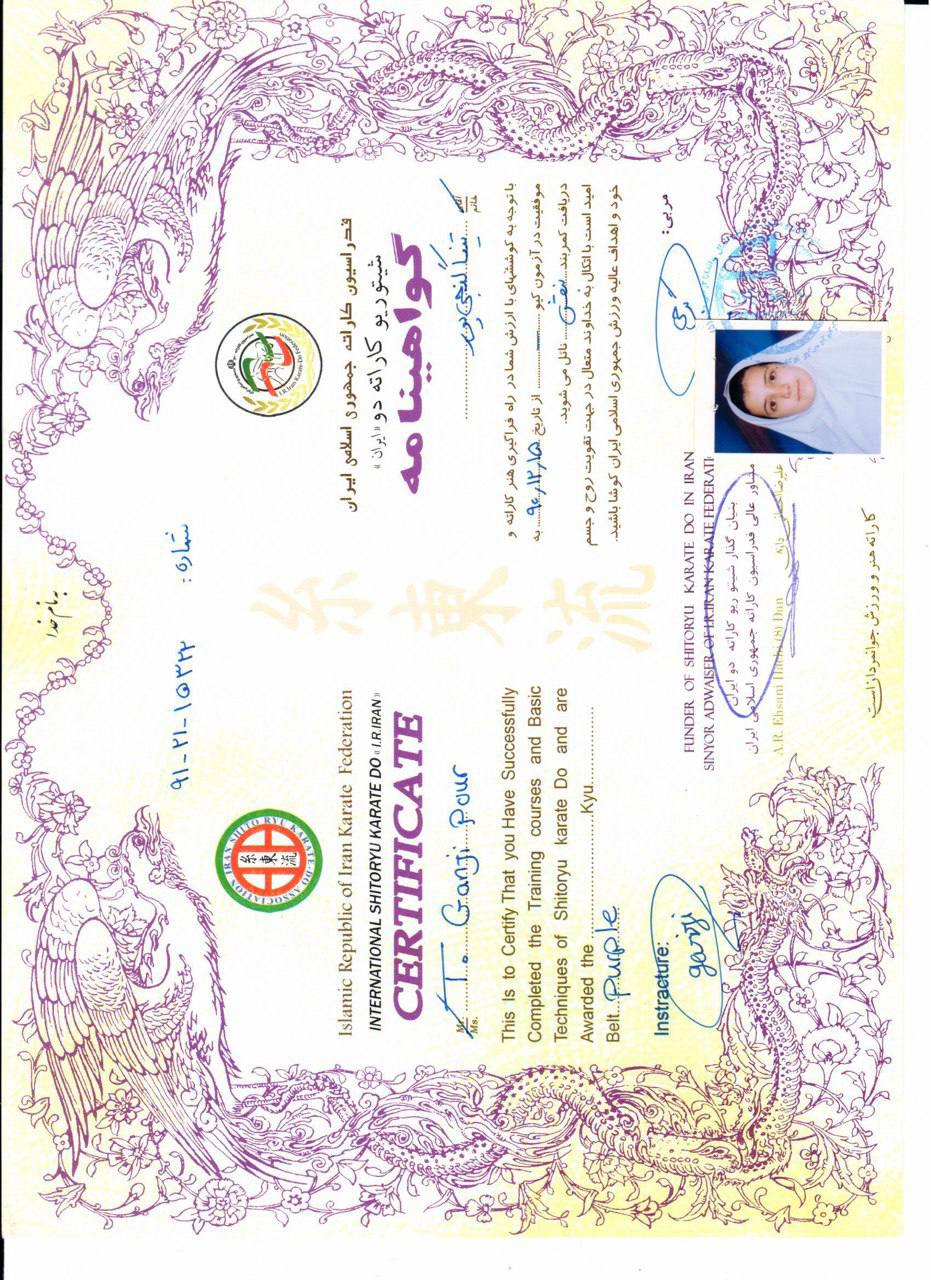 به نام خدا
شماره: ۹۱-۲۱-۱۵۳۲۲
IRAN SHITO RYU KARATE-DO ASSOCIATION
糸東流
I.R.Iran Karate-Do Federation
糸東流
Islamic Republic of Iran Karate Federation
INTERNATIONAL SHITORYU KARATE DO « I.R.IRAN »
CERTIFICATE
Mr. Ms. T. Ganji pour
This Is to Certify That you Have Successfully
Completed the Training courses and Basic
Techniques of Shitoryu karate Do and are
Awarded the ........................Kyu...............
Belt...purple
Instracture:
ganji
فدراسیون کاراته جمهوری اسلامی ایران
شیتوریو کاراته دو « ایران »
گواهینامه
آقای خانم گنجی پور
با توجه به کوششهای با ارزش شما در راه فراگیری هنر کاراته و
موفقیت در آزمون کیو ........... از تاریخ ۹۰،۱۲،۱۵ به
دریافت کمربند بنفش نائل می شوید.
امید است با اتکال به خداوند متعال در جهت تقویت روح و جسم
خود و اهداف عالیه ورزش جمهوری اسلامی ایران کوشا باشید.
مربی:
FUNDER OF SHITORYU KARATE DO IN IRAN
SINYOR ADWAISER OF I.R.IRAN KARATE FEDERATI
بنیان گذار شیتو ریو کاراته دو ایران
مشاور عالی فدراسیون کاراته جمهوری اسلامی ایران
A.R. Ehsani Hachi (8) Dan علیرضا احسانی
کاراته هنر و ورزش جوانمردان است